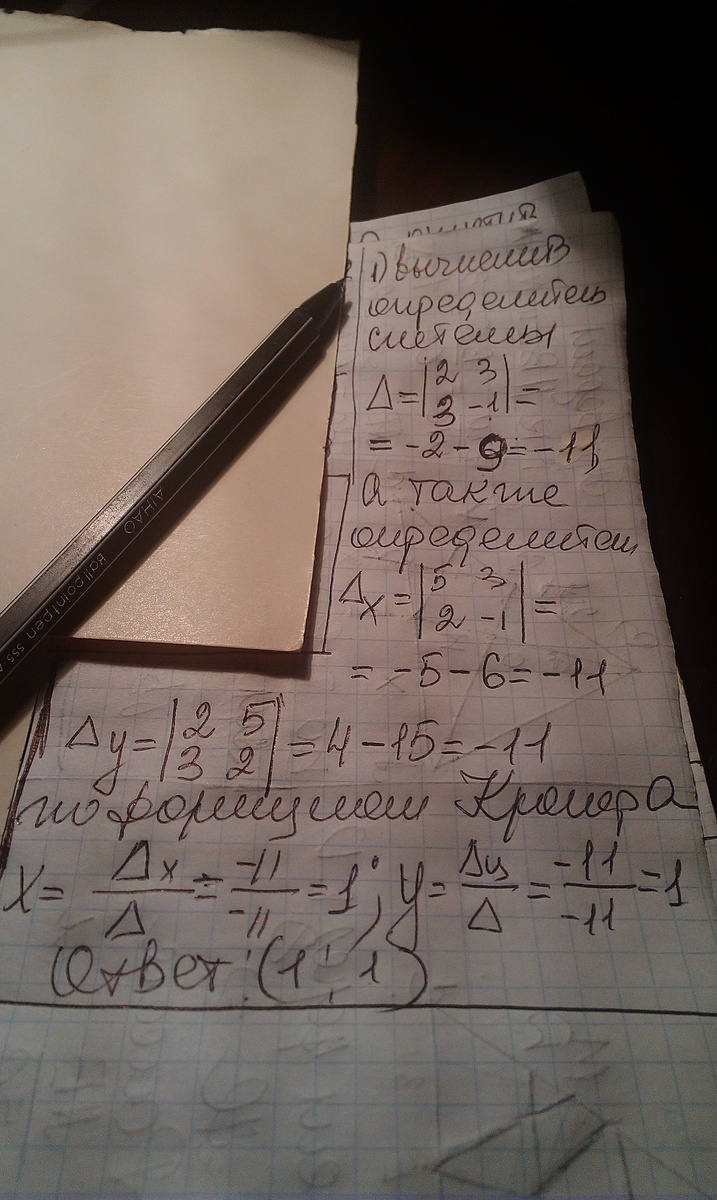 1) Вычислив
определитель
системы
Δ = |2 3; 3 -1| =
= -2 - 9 = -11,
а также
определители
Δx = |5 3; 2 -1| =
= -5 - 6 = -11
Δy = |2 5; 3 2| = 4 - 15 = -11
по формулам Крамера
x = Δx/Δ = -11/-11 = 1; y = Δy/Δ = -11/-11 = 1
Ответ: (1; 1)
AIHAO Ballpoint pen 555